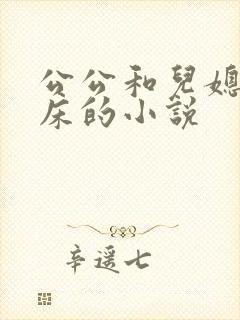 公公和兒媳
床的小説
辛遥七